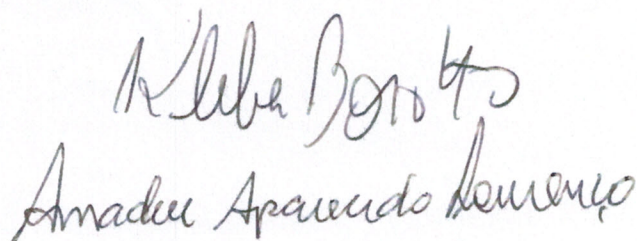 Kleber
Amadeu Aparecido Lourenço